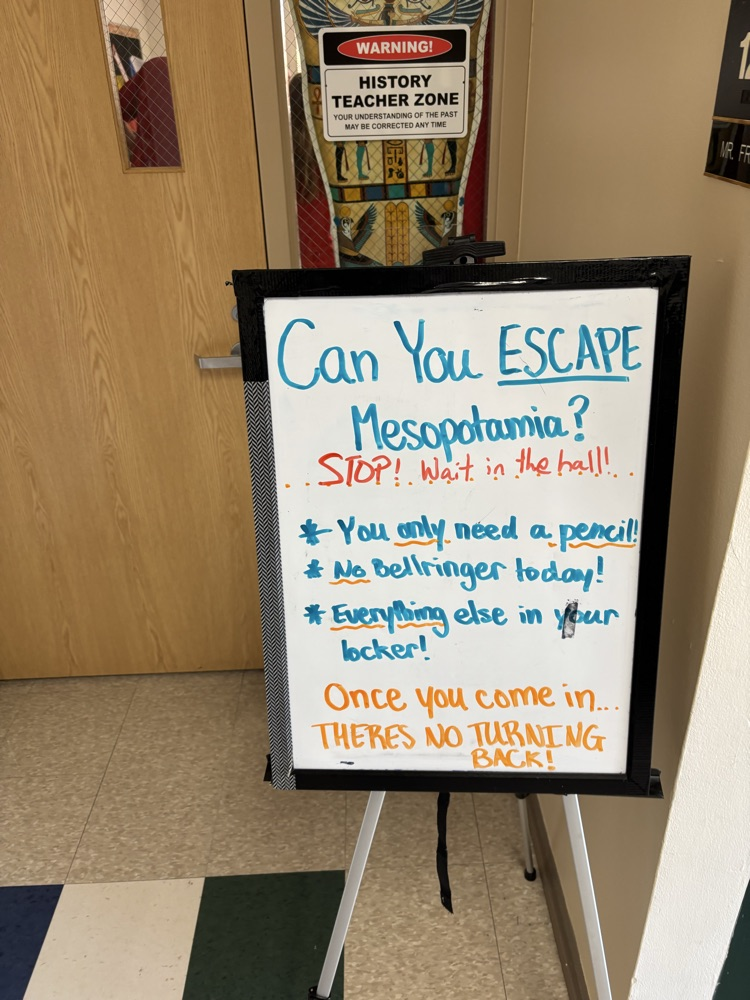 WARNING!
HISTORY
TEACHER ZONE
YOUR UNDERSTANDING OF THE PAST
MAY BE CORRECTED ANY TIME
MR. FR
Can You ESCAPE
Mesopotamia?
STOP! Wait in the hall!
* You only need a pencil!
* No Bellringer today!
* Everything else in your
locker!
Once you come in...
THERES NO TURNING
BACK!